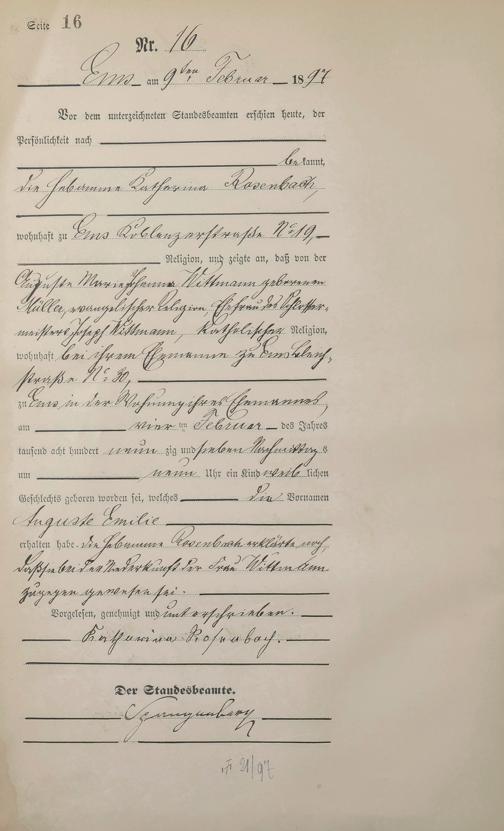 Seite 16
Nr. 16
Ems am 9ten Februar 1897
Vor dem unterzeichneten Standesbeamten erschien heute, der
Persönlichkeit nach
bekannt,
die Hebamme Katharina Rosenbach,
wohnhaft zu Ems Koblenzerstraße No 19,
Religion, und zeigte an, daß von der
Auguste Marie Johanna Wittmann geborenen
Müller, evangelischer Religion, Ehefrau des Schlosser-
meisters Joseph Wittmann, katholischer Religion,
wohnhaft bei ihrem Ehemanne zu Ems Bleich-
straße No 30,
zu Ems in der Wohnung ihres Ehemannes,
am vier ten Februar des Jahres
tausend acht hundert neun zig und sieben Nachmittags
um neun Uhr ein Kind weiblichen
Geschlechts geboren worden sei, welches die Vornamen
Auguste Emilie
erhalten habe. Die Hebamme Rosenbach erklärte noch,
daß sie bei der Niederkunft der Frau Wittmann
zugegen gewesen sei.
Vorgelesen, genehmigt und unterschrieben.
Katharina Rosenbach.
Der Standesbeamte.
Spangenberg
21/97